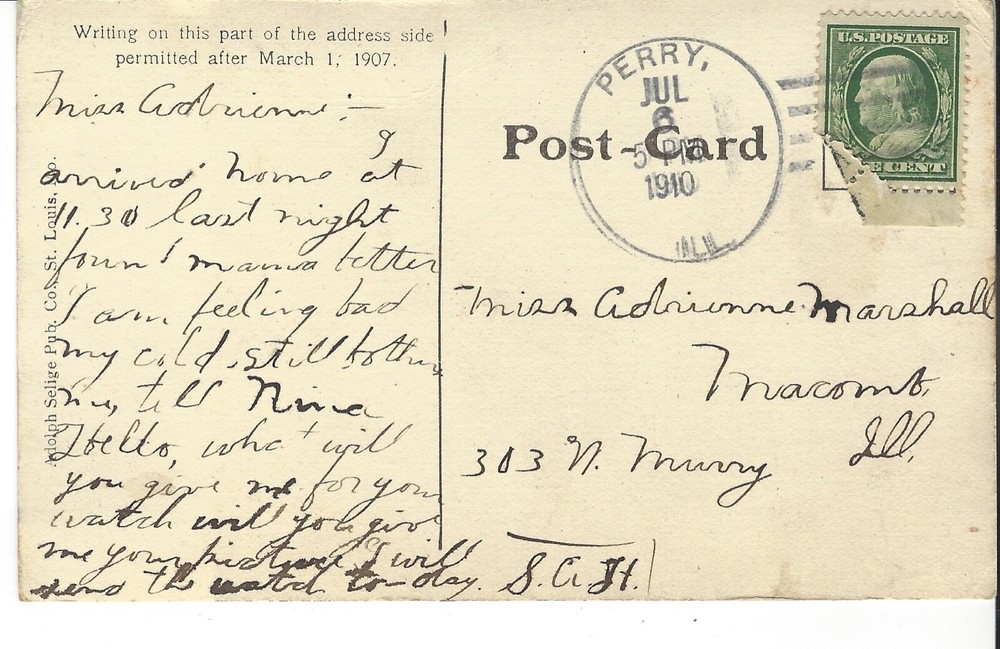 Writing on this part of the address side
permitted after March 1, 1907.
Miss Adrienne:—
I
arrived home at
11.30 last night
foun' mama better
I am feeling bad
my cold still bothers
me, tell Nina
Hello, what will
you give me for your
watch will you give
me your picture I will
send the watch to-day. S.A.H.
Adolph Selige Pub. Co., St. Louis, Mo.
Post-Card
PERRY,
JUL
6
5 PM
1910
ILL.
U.S. POSTAGE
CENT
Miss Adrienne Marshall
Macomb,
Ill,
303 N. Murry